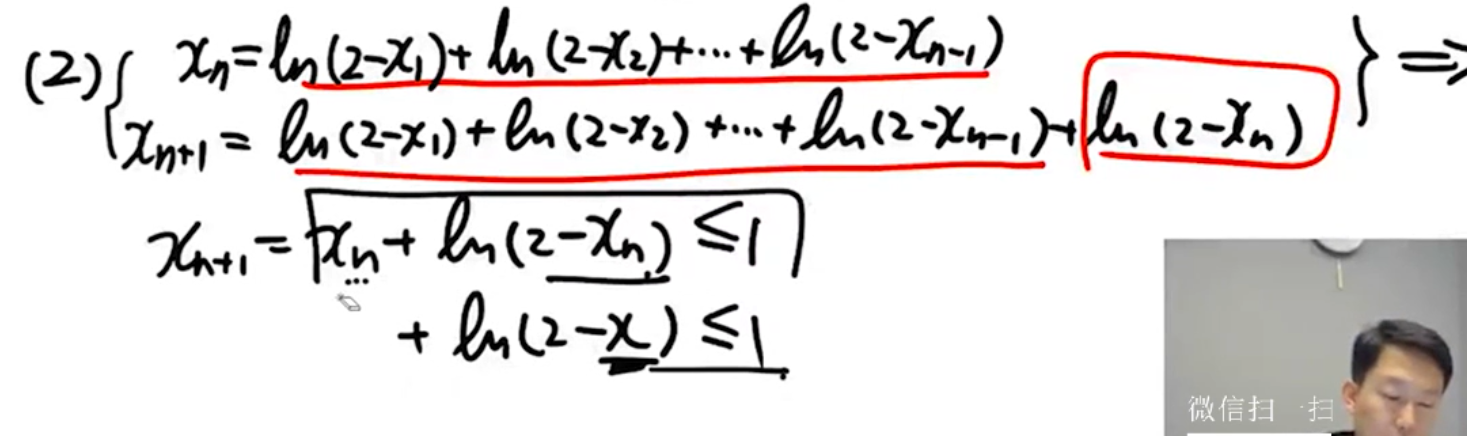 (2) { xₙ = ln(2-x₁) + ln(2-x₂) + ⋯ + ln(2-xₙ₋₁) } ⇒
xₙ₊₁ = ln(2-x₁) + ln(2-x₂) + ⋯ + ln(2-xₙ₋₁) + ln(2-xₙ)
xₙ₊₁ = xₙ + ln(2-xₙ) ≤ 1
...
+ ln(2-x) ≤ 1
微信扫一扫